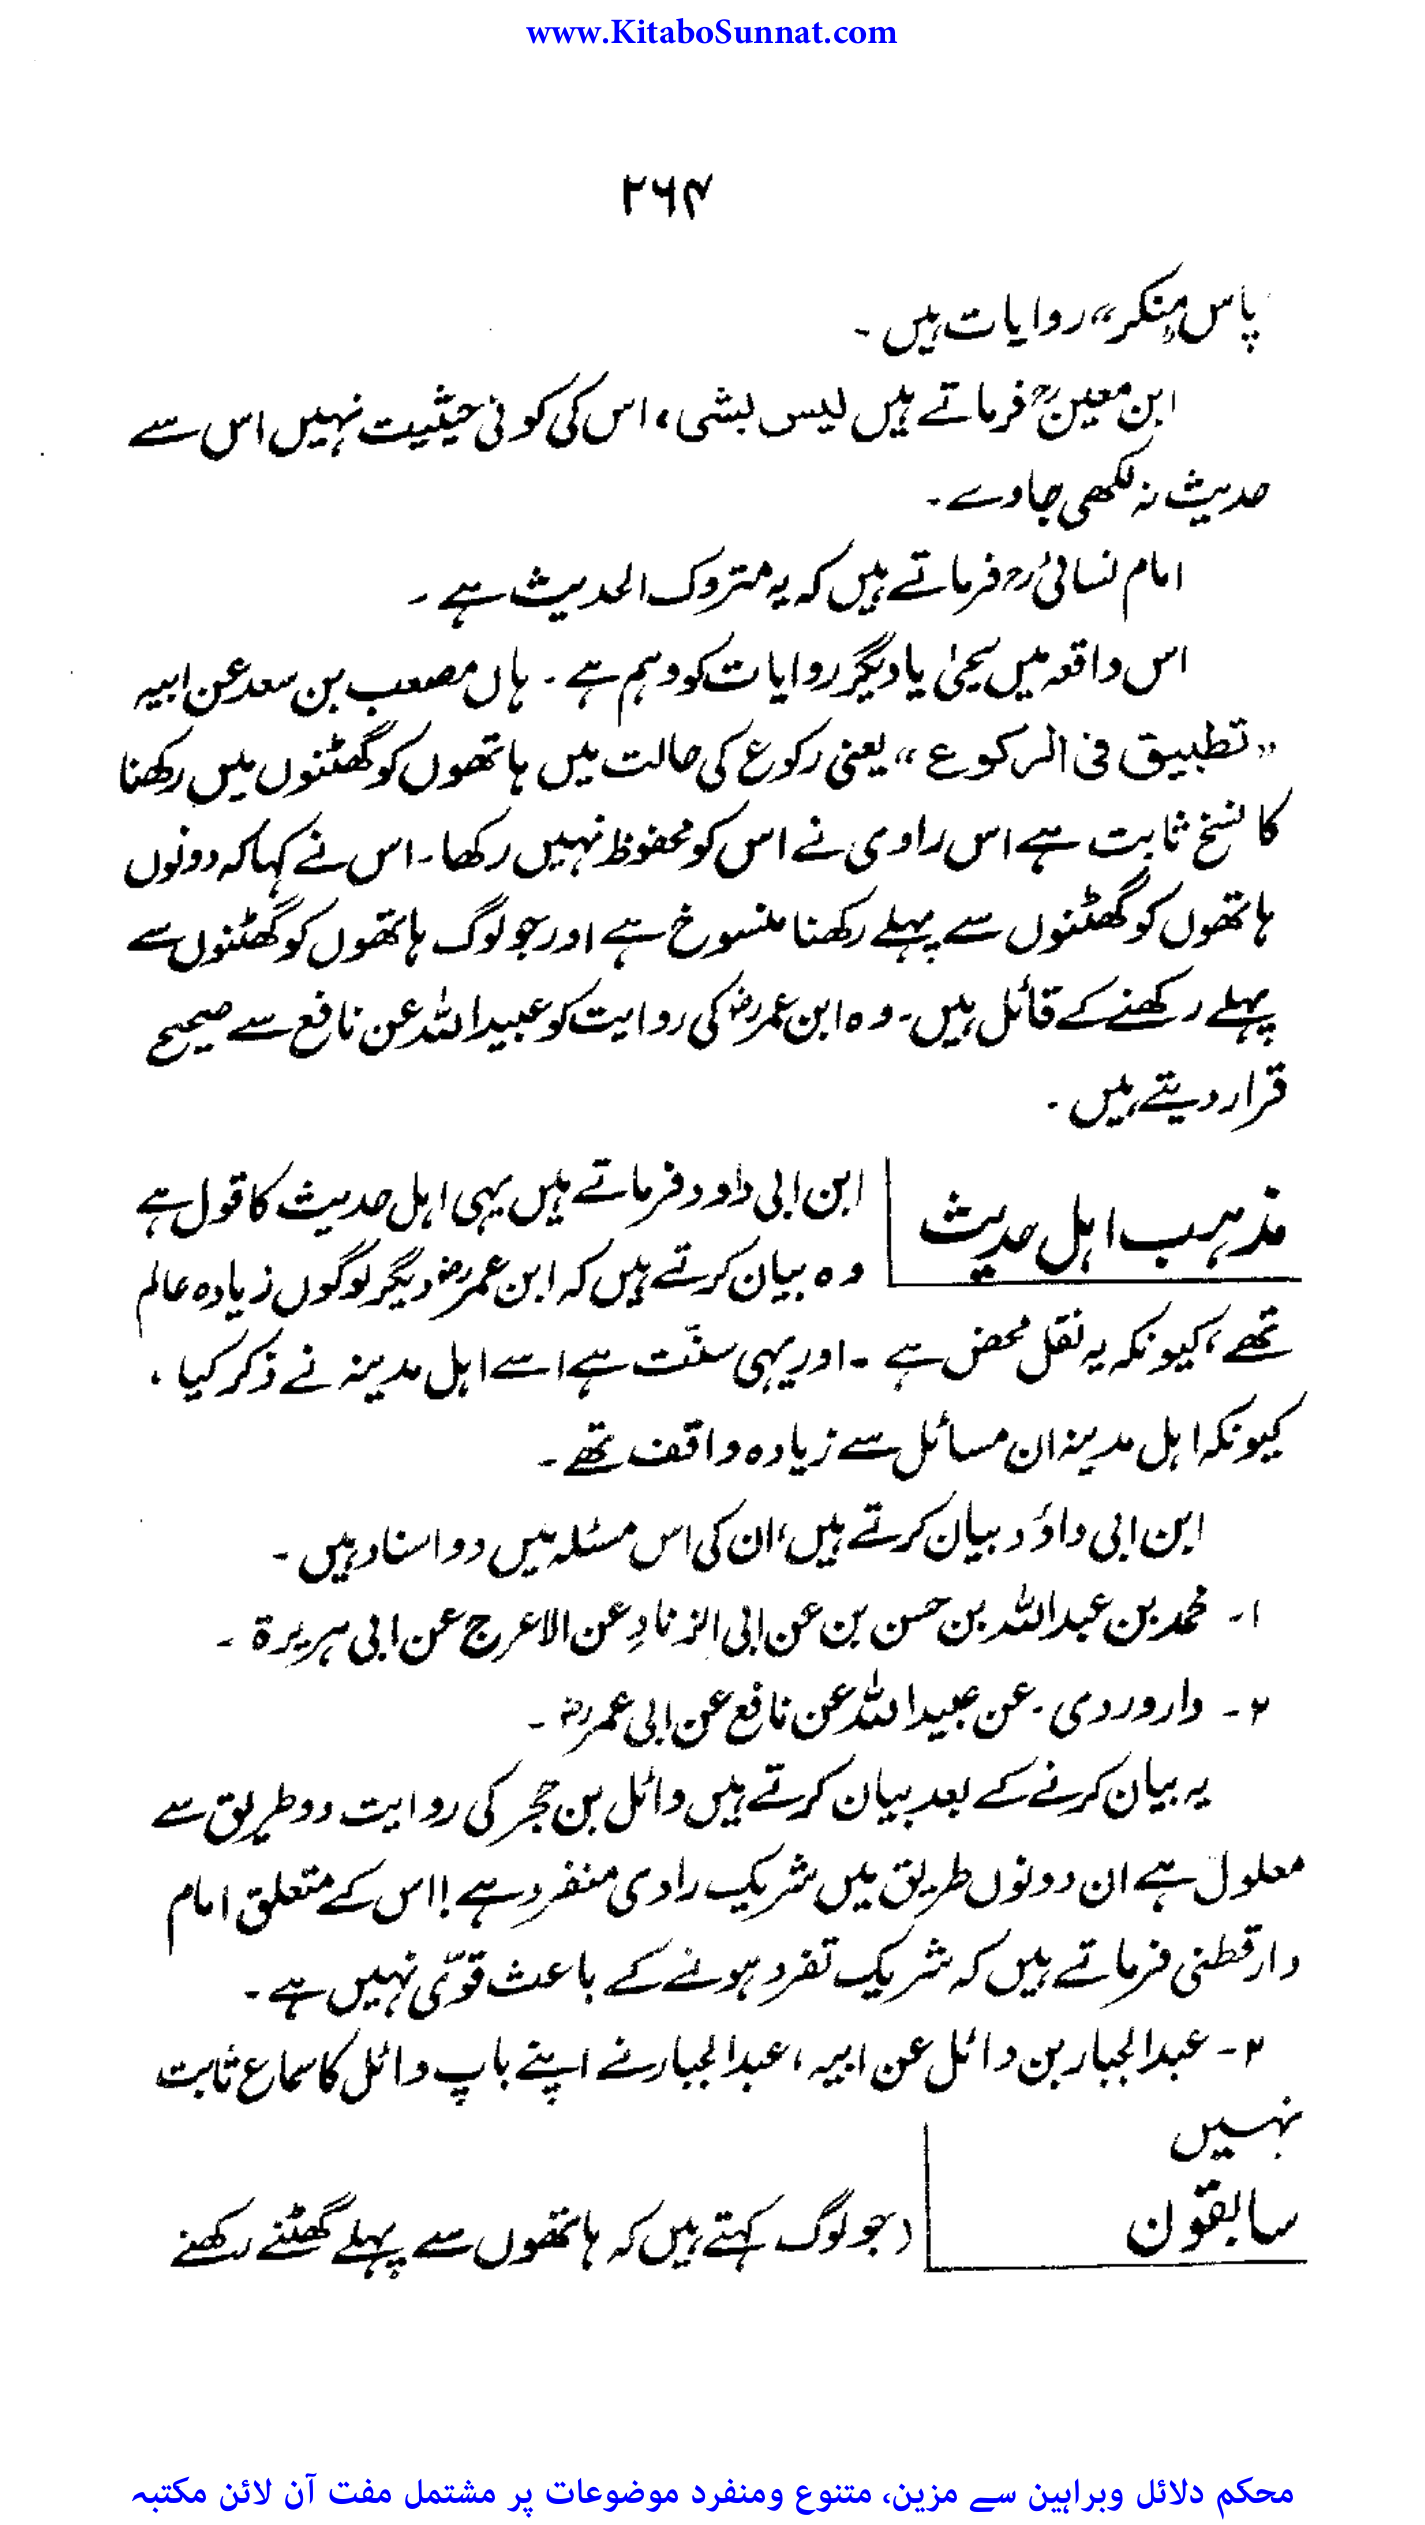 www.KitaboSunnat.com
۲۶۴
پاس "منکر" روایات ہیں۔
ابن معینؒ فرماتے ہیں لیس بشی، اس کی کوئی حیثیت نہیں اس سے
حدیث نہ لکھی جاوے۔
امام نسائیؒ فرماتے ہیں کہ یہ متروک الحدیث ہے۔
اس واقعہ میں یحییٰ یا دیگر روایات کو وہم ہے۔ ہاں مصعب بن سعد عن ابیہ
"تطبیق فی الرکوع" یعنی رکوع کی حالت میں ہاتھوں کو گھٹنوں میں رکھنا
کا نسخ ثابت ہے اس راوی نے اس کو محفوظ نہیں رکھا۔ اس نے کہا کہ دونوں
ہاتھوں کو گھٹنوں سے پہلے رکھنا منسوخ ہے اور جو لوگ ہاتھوں کو گھٹنوں سے
پہلے رکھنے کے قائل ہیں۔ وہ ابن عمرؓ کی روایت کو عبیداللہ عن نافع سے صحیح
قرار دیتے ہیں۔
مذہب اہل حدیث
ابن ابی داود فرماتے ہیں یہی اہل حدیث کا قول ہے
وہ بیان کرتے ہیں کہ ابن عمرؓ دیگر لوگوں زیادہ عالم
تھے، کیونکہ یہ نقل محض ہے۔ اور یہی سنّت ہے اسے اہل مدینہ نے ذکر کیا،
کیونکہ اہل مدینہ ان مسائل سے زیادہ واقف تھے۔
ابن ابی داؤد بیان کرتے ہیں، ان کی اس مسئلہ میں دو اسناد ہیں۔
۱۔ محمد بن عبداللہ بن حسن بن عن ابی الزنادِ عن الاعرج عن ابی ہریرۃ۔
۲۔ داروردی۔ عن عبیداللہ عن نافع عن ابی عمرؓ۔
یہ بیان کرنے کے بعد بیان کرتے ہیں وائل بن حجر کی روایت دو طریق سے
معلول ہے ان دونوں طریق میں شریک راوی منفرد ہے! اس کے متعلق امام
دارقطنی فرماتے ہیں کہ شریک تفرد ہونے کے باعث قوّی نہیں ہے۔
۲۔ عبدالجبار بن وائل عن ابیہ، عبدالجبار نے اپنے باپ وائل کا سماع ثابت
نہیں
سابقون
(جو لوگ کہتے ہیں کہ ہاتھوں سے پہلے گھٹنے رکھنے
محکم دلائل وبراہین سے مزین، متنوع ومنفرد موضوعات پر مشتمل مفت آن لائن مکتبہ